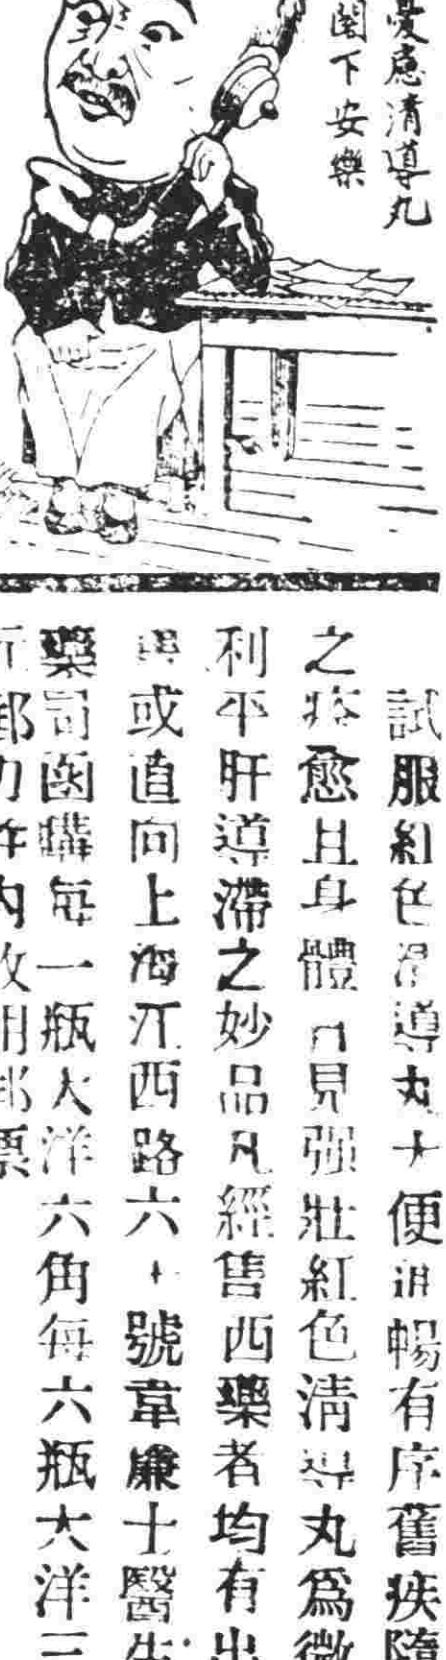 憂慮清導丸
閣下安樂
試服紅色清導丸大便通暢有序舊疾隨
之痊愈且身體日見强壯紅色清導丸爲微
利平肝導滯之妙品凡經售西藥者均有出
或直向上海江西路六十號韋廉士醫生
藥司函購每一瓶大洋六角每六瓶大洋三
內